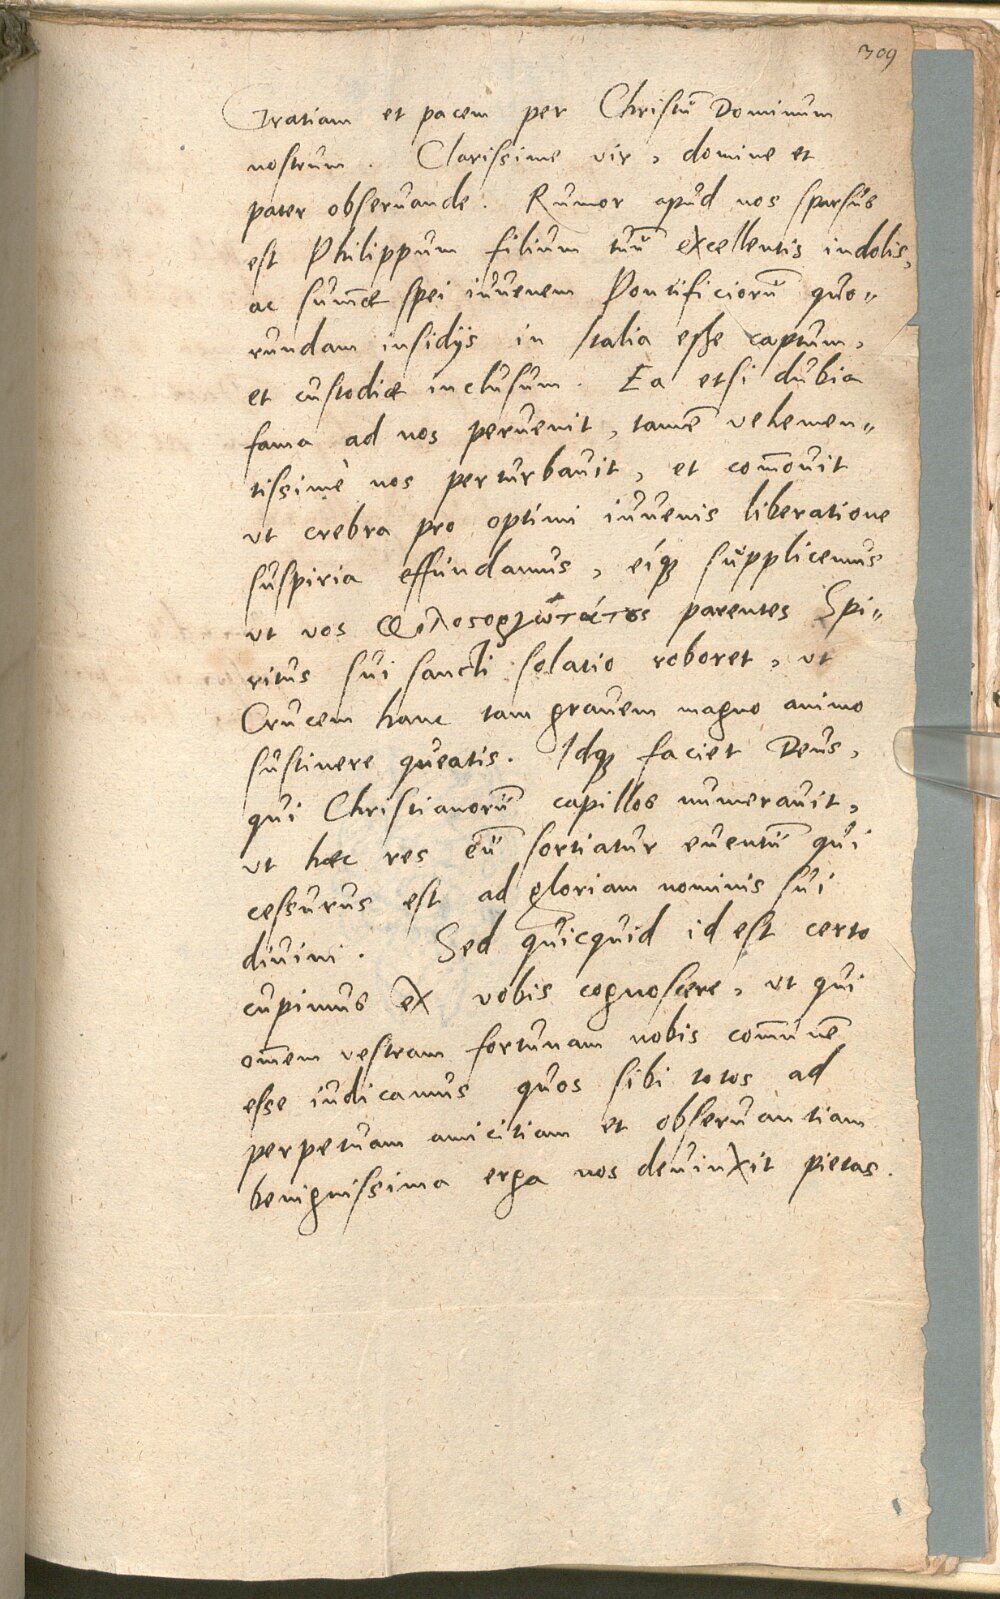 309
Gratiam et pacem per Christū Dominum
nostrum. Clarissime vir, domine et
pater obseruande. Rumor apud nos sparsus
est Philippum filium tuū excellentis indolis,
ac sum̄æ spei iuuenem Pontificiorū quo〃
rundam insidijs in Italia esse captum,
et custodiæ inclusum. Ea etsi dubia
fama ad nos peruenit, tamē vehemen〃
tissimè nos perturbauit, et com̄ouit
vt crebra pro optimi iuuenis liberatione
suspiria effundamus, eiq́ꝫ supplicemus
vt vos parentes Spi〃
ritus sui sancti solatio roboret, vt
Crucem hanc tam grauem magno animo
sustinere queatis. Idqꝫ faciet Deus,
qui Christianorū capillos numerauit,
vt hæc res eū sortiatur euentū qui
cessurus est ad gloriam nominis sui
diuini. Sed quicquid id est certo
cupimus ex vobis cognoscere, vt qui
om̄em vestram fortunam nobis com̄unē
esse iudicamus quos sibi totos ad
perpetuam amicitiam et obseruantiam
benignissima erga nos deuinxit pietas.